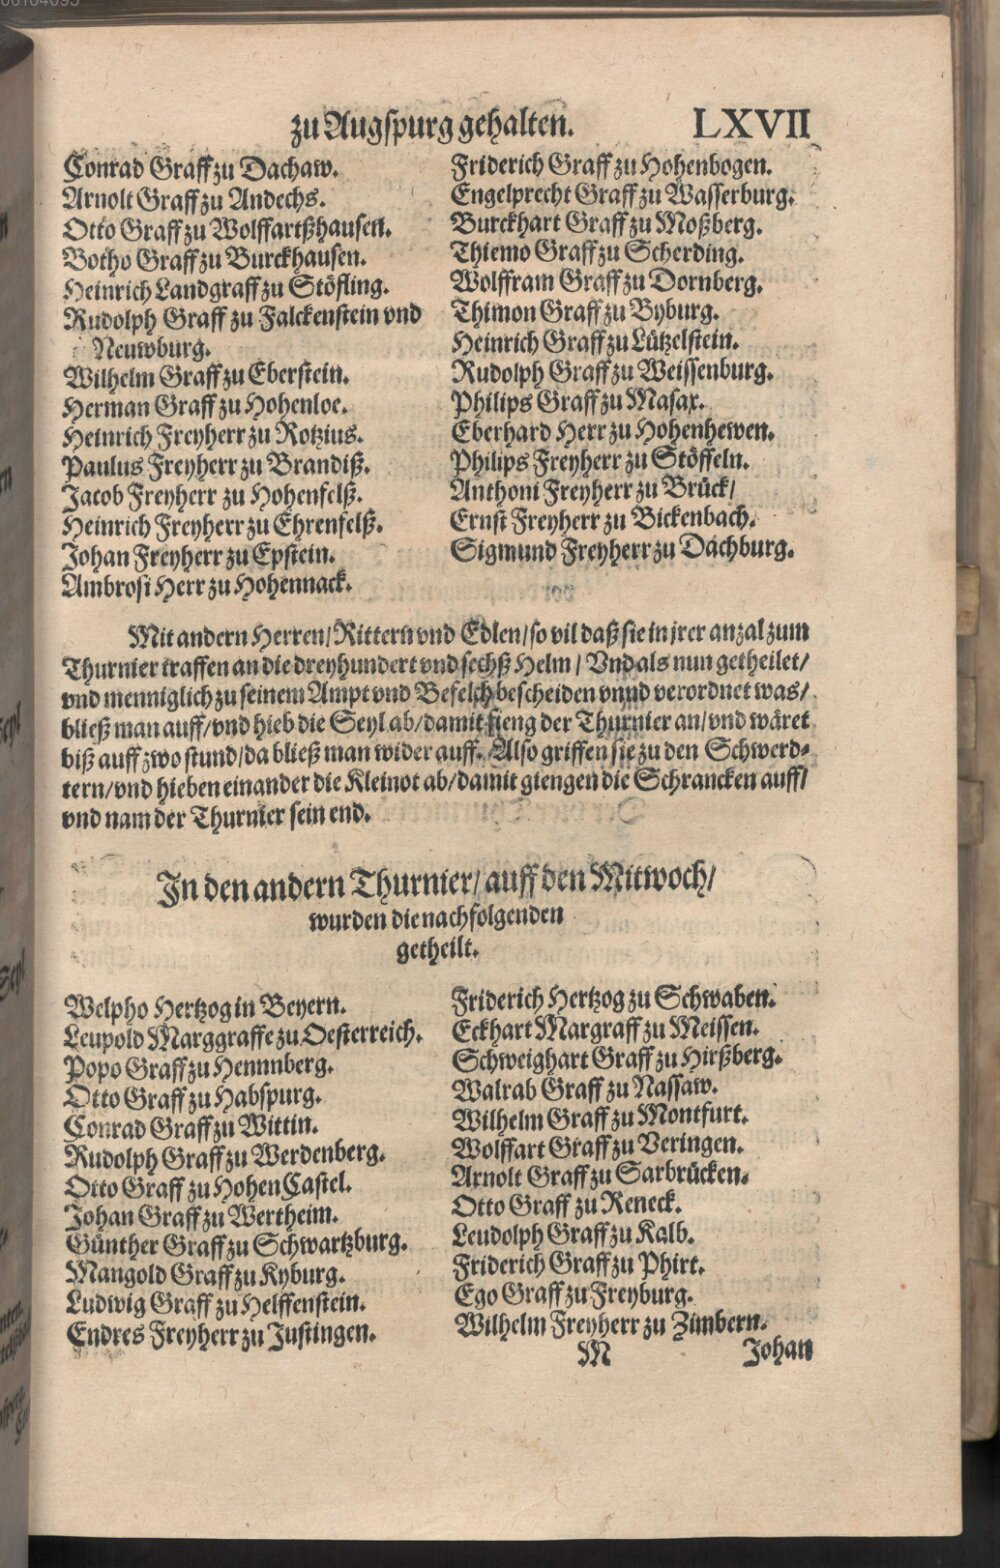 zu Augspurg gehalten. LXVII
Conrad Graff zu Dachaw.
Arnolt Graff zu Andechs.
Otto Graff zu Wolffartßhausen.
Botho Graff zu Burckhausen.
Heinrich Landgraff zu Stöfling.
Rudolph Graff zu Falckenstein vnd
Neuwburg.
Wilhelm Graff zu Eberstein.
Herman Graff zu Hohenloe.
Heinrich Freyherr zu Rotzius.
Paulus Freyherr zu Brandiß.
Jacob Freyherr zu Hohenfelß.
Heinrich Freyherr zu Ehrenfelß.
Johan Freyherr zu Epstein.
Ambrosi Herr zu Hohennack.
Friderich Graff zu Hohenbogen.
Engelprecht Graff zu Wasserburg.
Burckhart Graff zu Moßberg.
Thiemo Graff zu Scherding.
Wolffram Graff zu Dornberg.
Thimon Graff zu Byburg.
Heinrich Graff zu Lützelstein.
Rudolph Graff zu Weissenburg.
Philips Graff zu Masax.
Eberhard Herr zu Hohenhewen.
Philips Freyherr zu Stöffeln.
Anthoni Freyherr zu Brück/
Ernst Freyherr zu Bickenbach.
Sigmund Freyherr zu Dachburg.
Mit andern Herren/Rittern vnd Edlen/so vil daß sie in jrer anzal zum
Thurnier traffen an die dreyhundert vnd sechß Helm/ Vnd als nun getheilet/
vnd menniglich zu seinem Ampt vnd Befelch bescheiden vnnd verordnet was/
bließ man auff/vnd hieb die Seyl ab/damit fieng der Thurnier an/vnd wäret
biß auff zwo stund/da bließ man wider auff. Also griffen sie zu den Schwerd-
tern/vnd hieben einander die Kleinot ab/damit giengen die Schrancken auff/
vnd nam der Thurnier sein end.
In den andern Thurnier/ auff den Mitwoch/
wurden die nachfolgenden
getheilt.
Welpho Hertzog in Beyern.
Leupold Marggraffe zu Oesterreich.
Popo Graff zu Hennnberg.
Otto Graff zu Habspurg.
Conrad Graff zu Wittin.
Rudolph Graff zu Werdenberg.
Otto Graff zu Hohen Castel.
Johan Graff zu Wertheim.
Günther Graff zu Schwartzburg.
Mangold Graff zu Kyburg.
Ludwig Graff zu Helffenstein.
Endres Freyherr zu Justingen.
Friderich Hertzog zu Schwaben.
Eckhart Margraff zu Meissen.
Schweighart Graff zu Hirßberg.
Walrab Graff zu Nassaw.
Wilhelm Graff zu Montfurt.
Wolffart Graff zu Veringen.
Arnolt Graff zu Sarbrücken.
Otto Graff zu Reneck.
Leudolph Graff zu Kalb.
Friderich Graff zu Phirt.
Ego Graff zu Freyburg.
Wilhelm Freyherr zu Zimbern.
M Johan